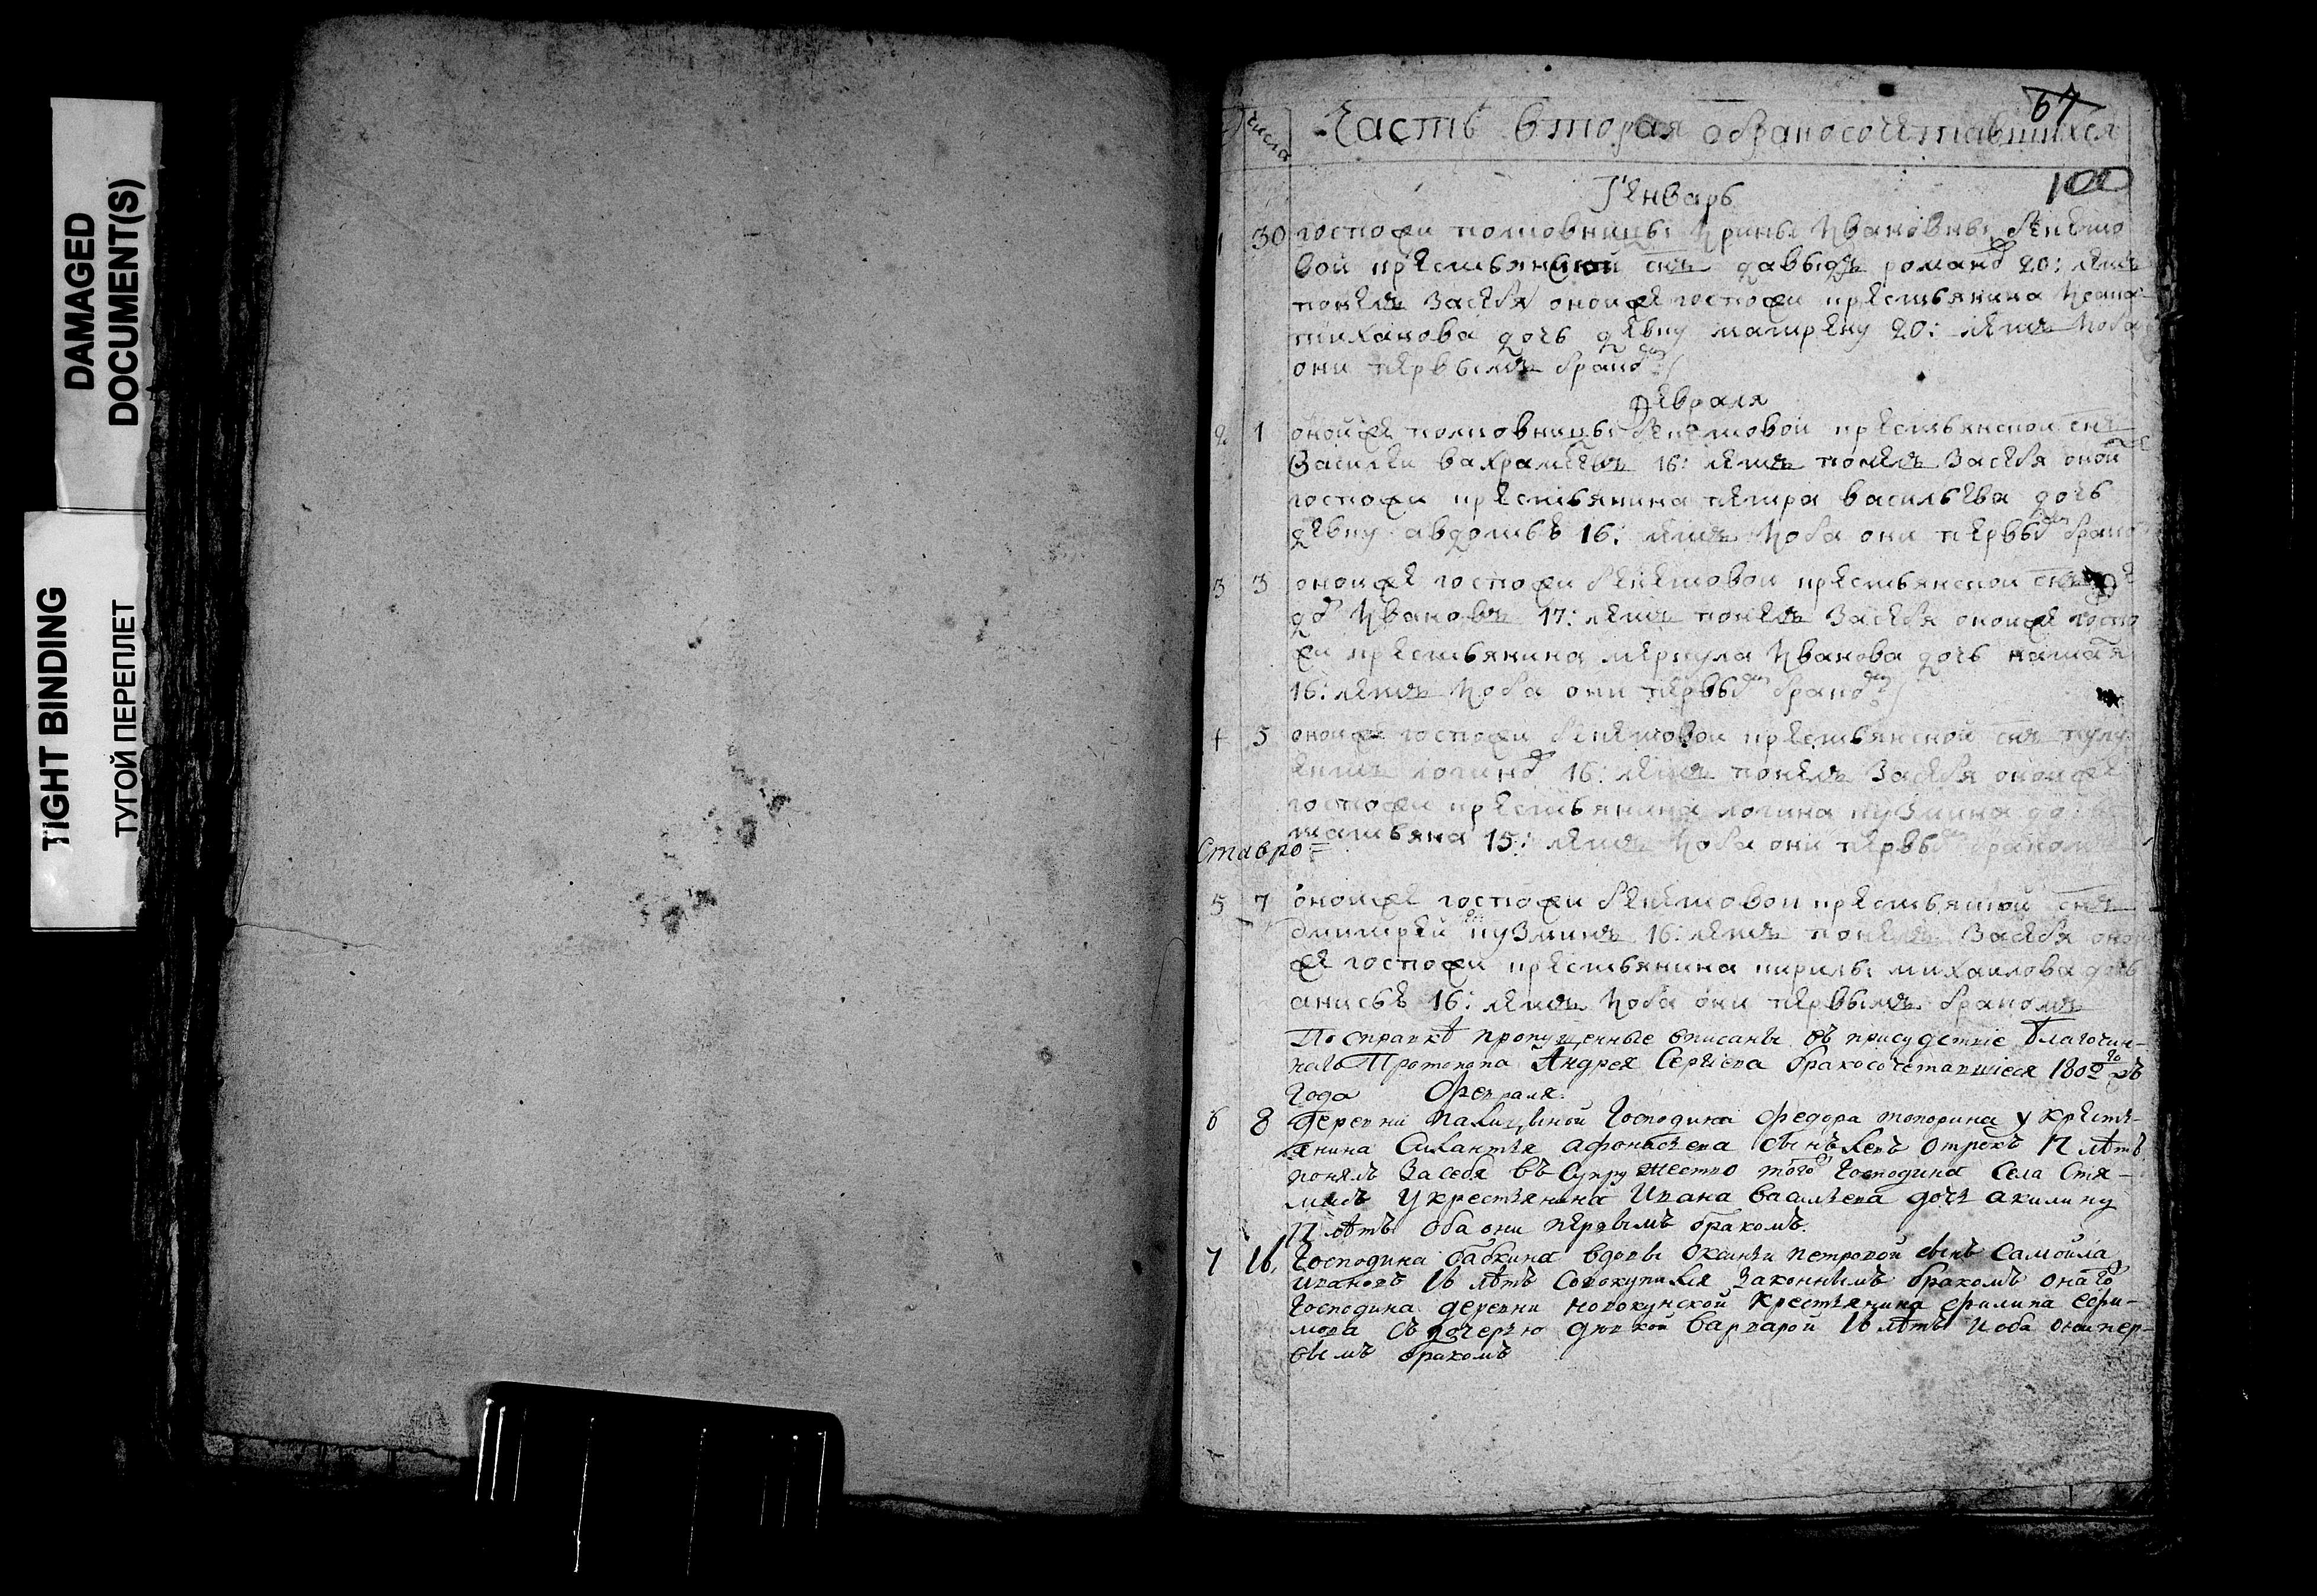 DAMAGED
DOCUMENT(S)
TIGHT BINDING
ТУГОЙ ПЕРЕПЛЕТ
67
числа
Часть вторая обракосочетавшихся
100
Генварь
1 30 госпожи полковницы Ирины Ивановны
вой крестьянской снъ давыдъ романо 20: летъ
понелъ засебя оной же госпожи крестьянина
тиханова дочь девку матрену 20: летъ Иоба
они первымъ брако
февраля
2 1 оной же полковницы крестьянской снъ
Василеи вахрамеевъ 16: летъ понелъ засебя оной
госпожи крестьянина петра васильева дочь
девку авдотью 16: летъ Иоба они первы брако
3 3 оной же госпожи крестьянской снъ
Ивановъ 17: летъ понелъ засебя оной же госпо
жи крестьянина меркула Иванова дочь
16: летъ Иоба они первы брако
4 5 оной же госпожи крестьянской снъ
логино 16: летъ понелъ засебя оной же
госпожи крестьянина логина кузмина
татьяна 15: летъ Иоба они первы бракомъ
Ставро=
5 7 оной же госпожи крестьянской снъ
дмитрей кузминъ 16: летъ понелъ засебя оной
же госпожи крестьянина кирилы михаилова дочь
анисью 16: летъ Иоба они первымъ бракомъ
По справке пропущенные вписаны въ присудствие Благочин-
наго Протопопа Андрея Сергиева бракосочетавшиеся 1800го
года Февраля.
6 8 деревни Господина Федора топорина у крестъ-
янина Силантья афонасьева сынъ отрокъ 17 летъ
понялъ засебя въ Супружество того Господина Села Стя-
у крестьянина Ивана дочь акилину
17 летъ оба они первымъ бракомъ.
7 16, Господина бабкина вдовы Оксиньи петровой сынъ Самойла
Ивановъ 16 летъ Совокупился Законнымъ бракомъ онаго
Господина деревни Крестьянина филипа ефи-
мова съ дочерью девкой варварой 16 летъ Иоба они пер-
вымъ бракомъ